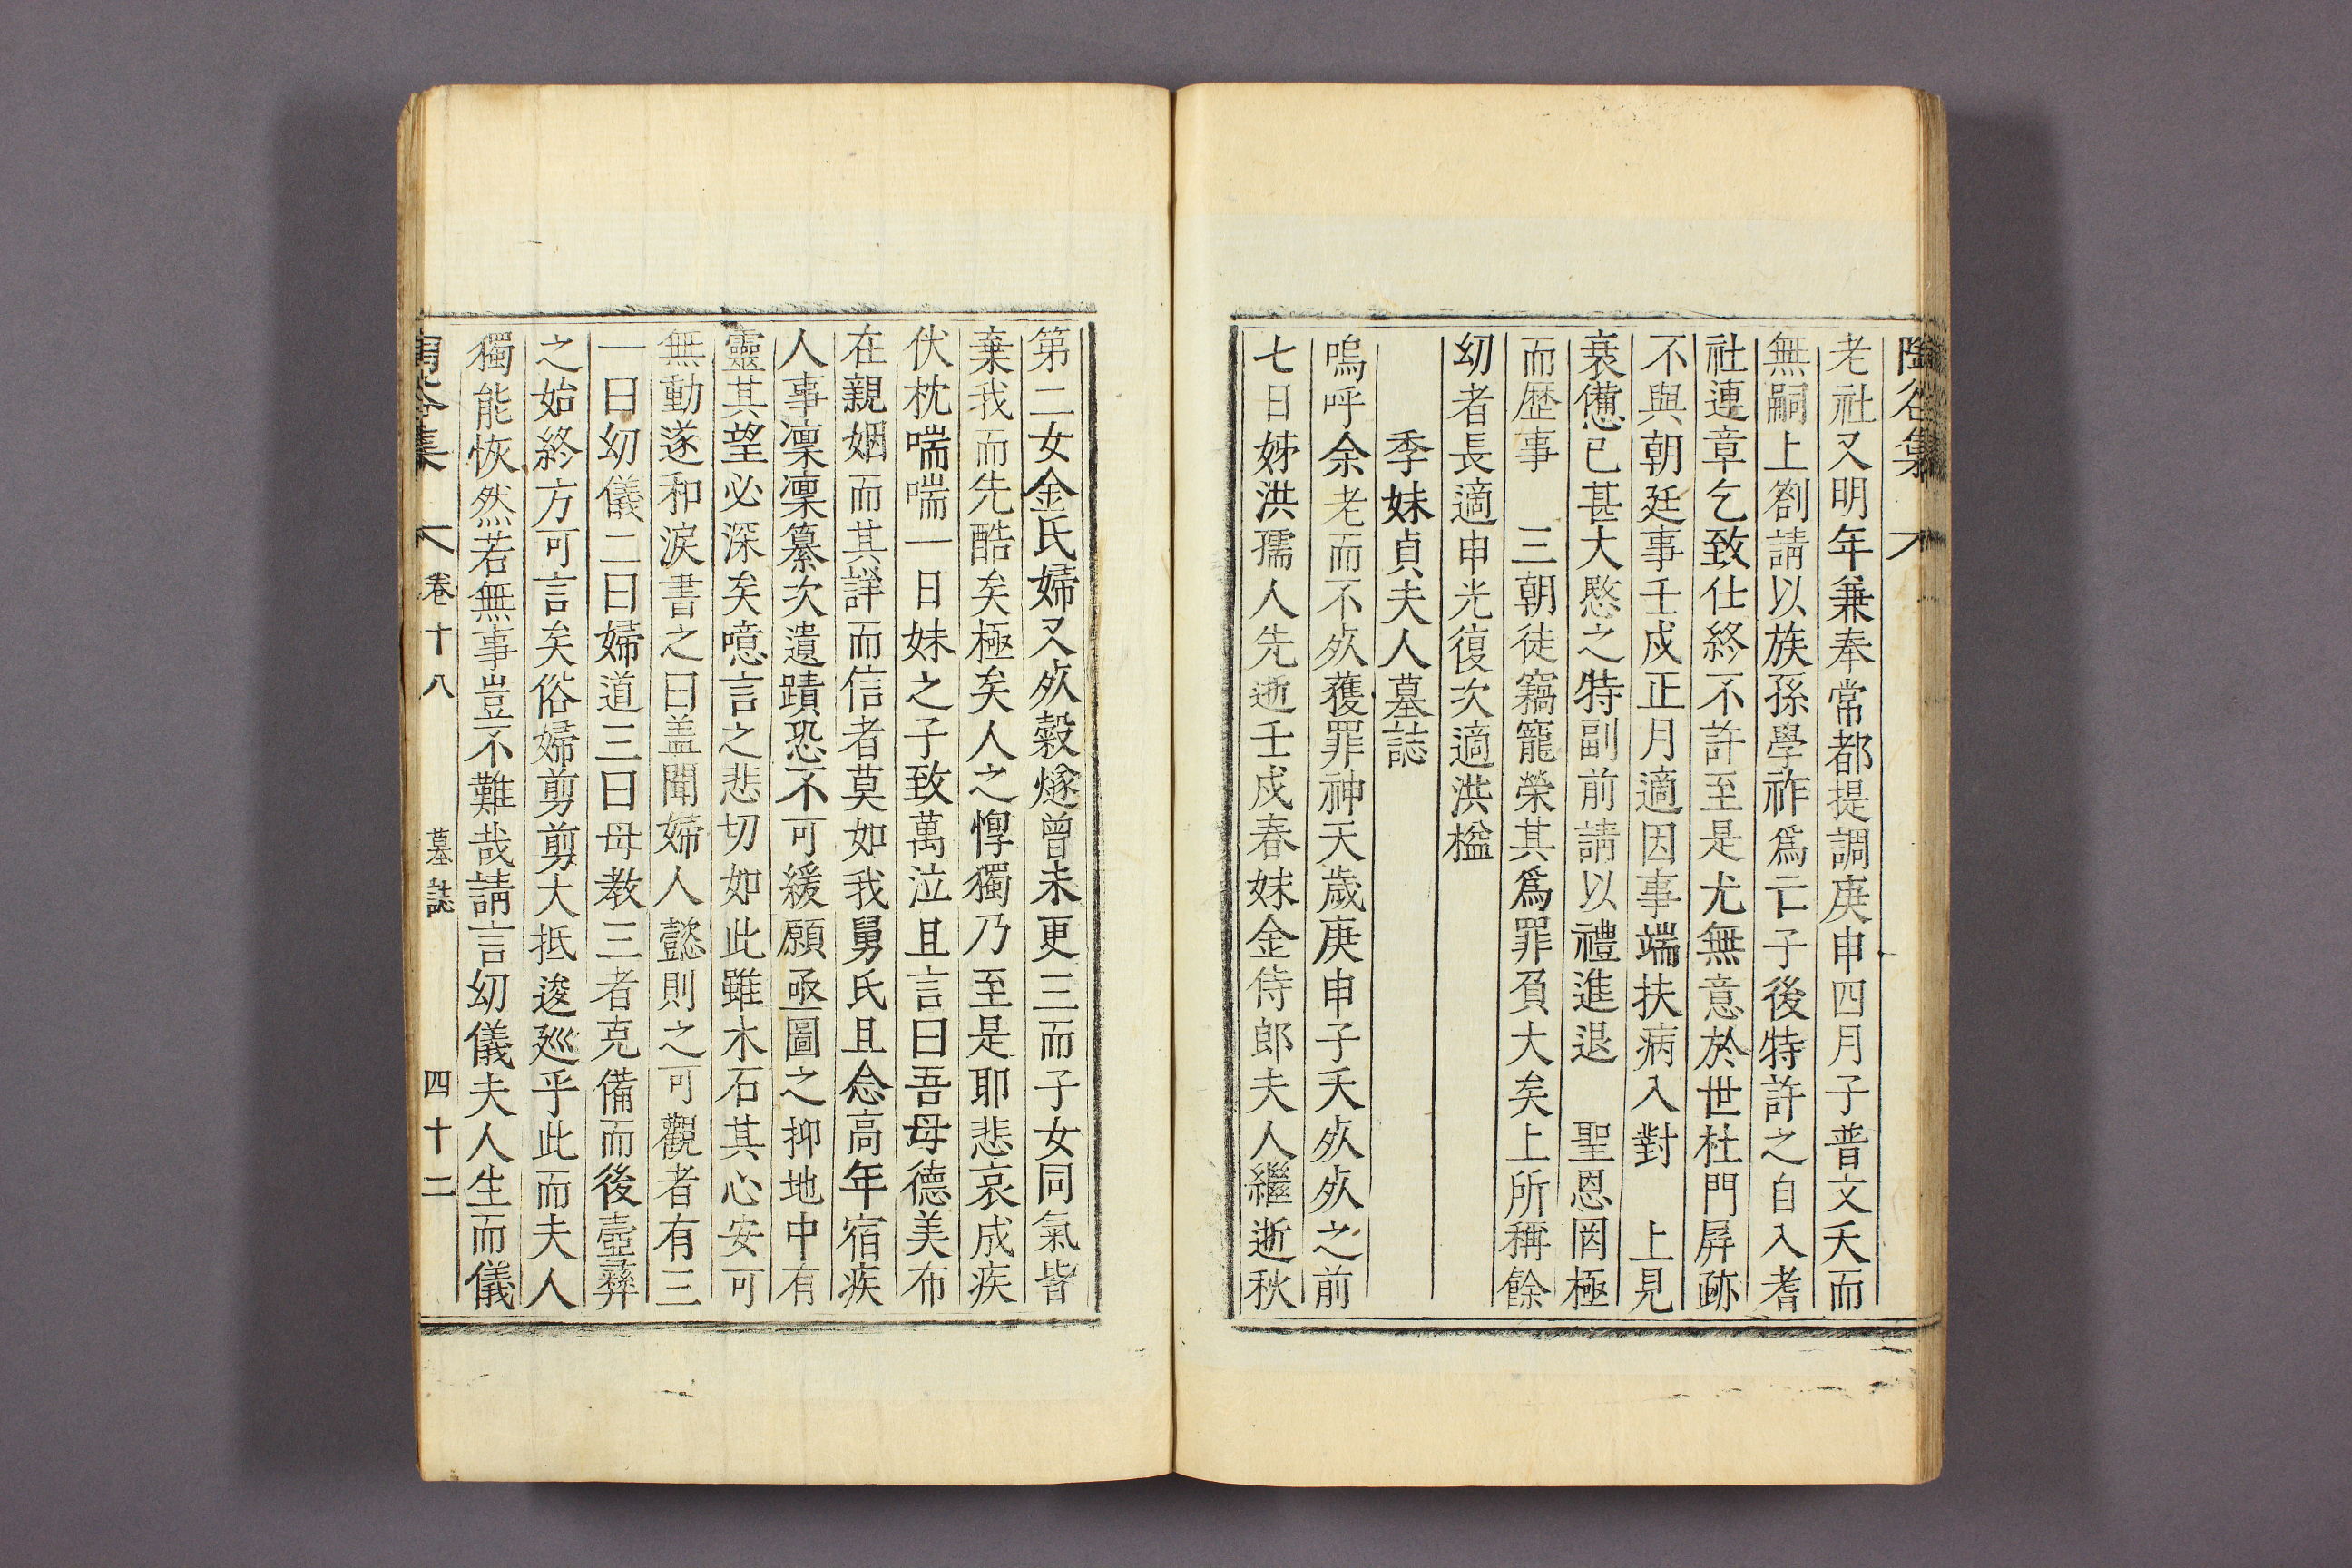 陶谷集
老社又明年兼奉常都提調庚申四月子普文夭而
無嗣上劄請以族孫學祚爲亡子後特許之自入耆
社連章乞致仕終不許至是尤無意於世杜門屛跡
不與朝廷事壬戌正月適因事端扶病入對　上見
衰憊已甚大愍之特副前請以禮進退　聖恩罔極
而歷事　三朝徒竊寵榮其爲罪負大矣上所稱餘
幼者長適申光復次適洪楹
季妹貞夫人墓誌
嗚呼余老而不死獲罪神天歲庚申子夭死死之前
七日姊洪孺人先逝壬戌春妹金侍郞夫人繼逝秋
第二女金氏婦又死糓燧曾未更三而子女同氣皆
棄我而先酷矣極矣人之惸獨乃至是耶悲哀成疾
伏枕喘喘一日妹之子致萬泣且言曰吾母德美布
在親姻而其詳而信者莫如我舅氏且念高年宿疾
人事凜凜纂次遺蹟恐不可緩願亟圖之抑地中有
靈其望必深矣噫言之悲切如此雖木石其心安可
無動遂和淚書之曰盖聞婦人懿則之可觀者有三
一曰幼儀二曰婦道三曰母敎三者克備而後壼彛
之始終方可言矣俗婦剪剪大抵逡廵乎此而夫人
獨能恢然若無事豈不難哉請言幼儀夫人生而儀
陶谷集　卷十八　墓誌　四十二